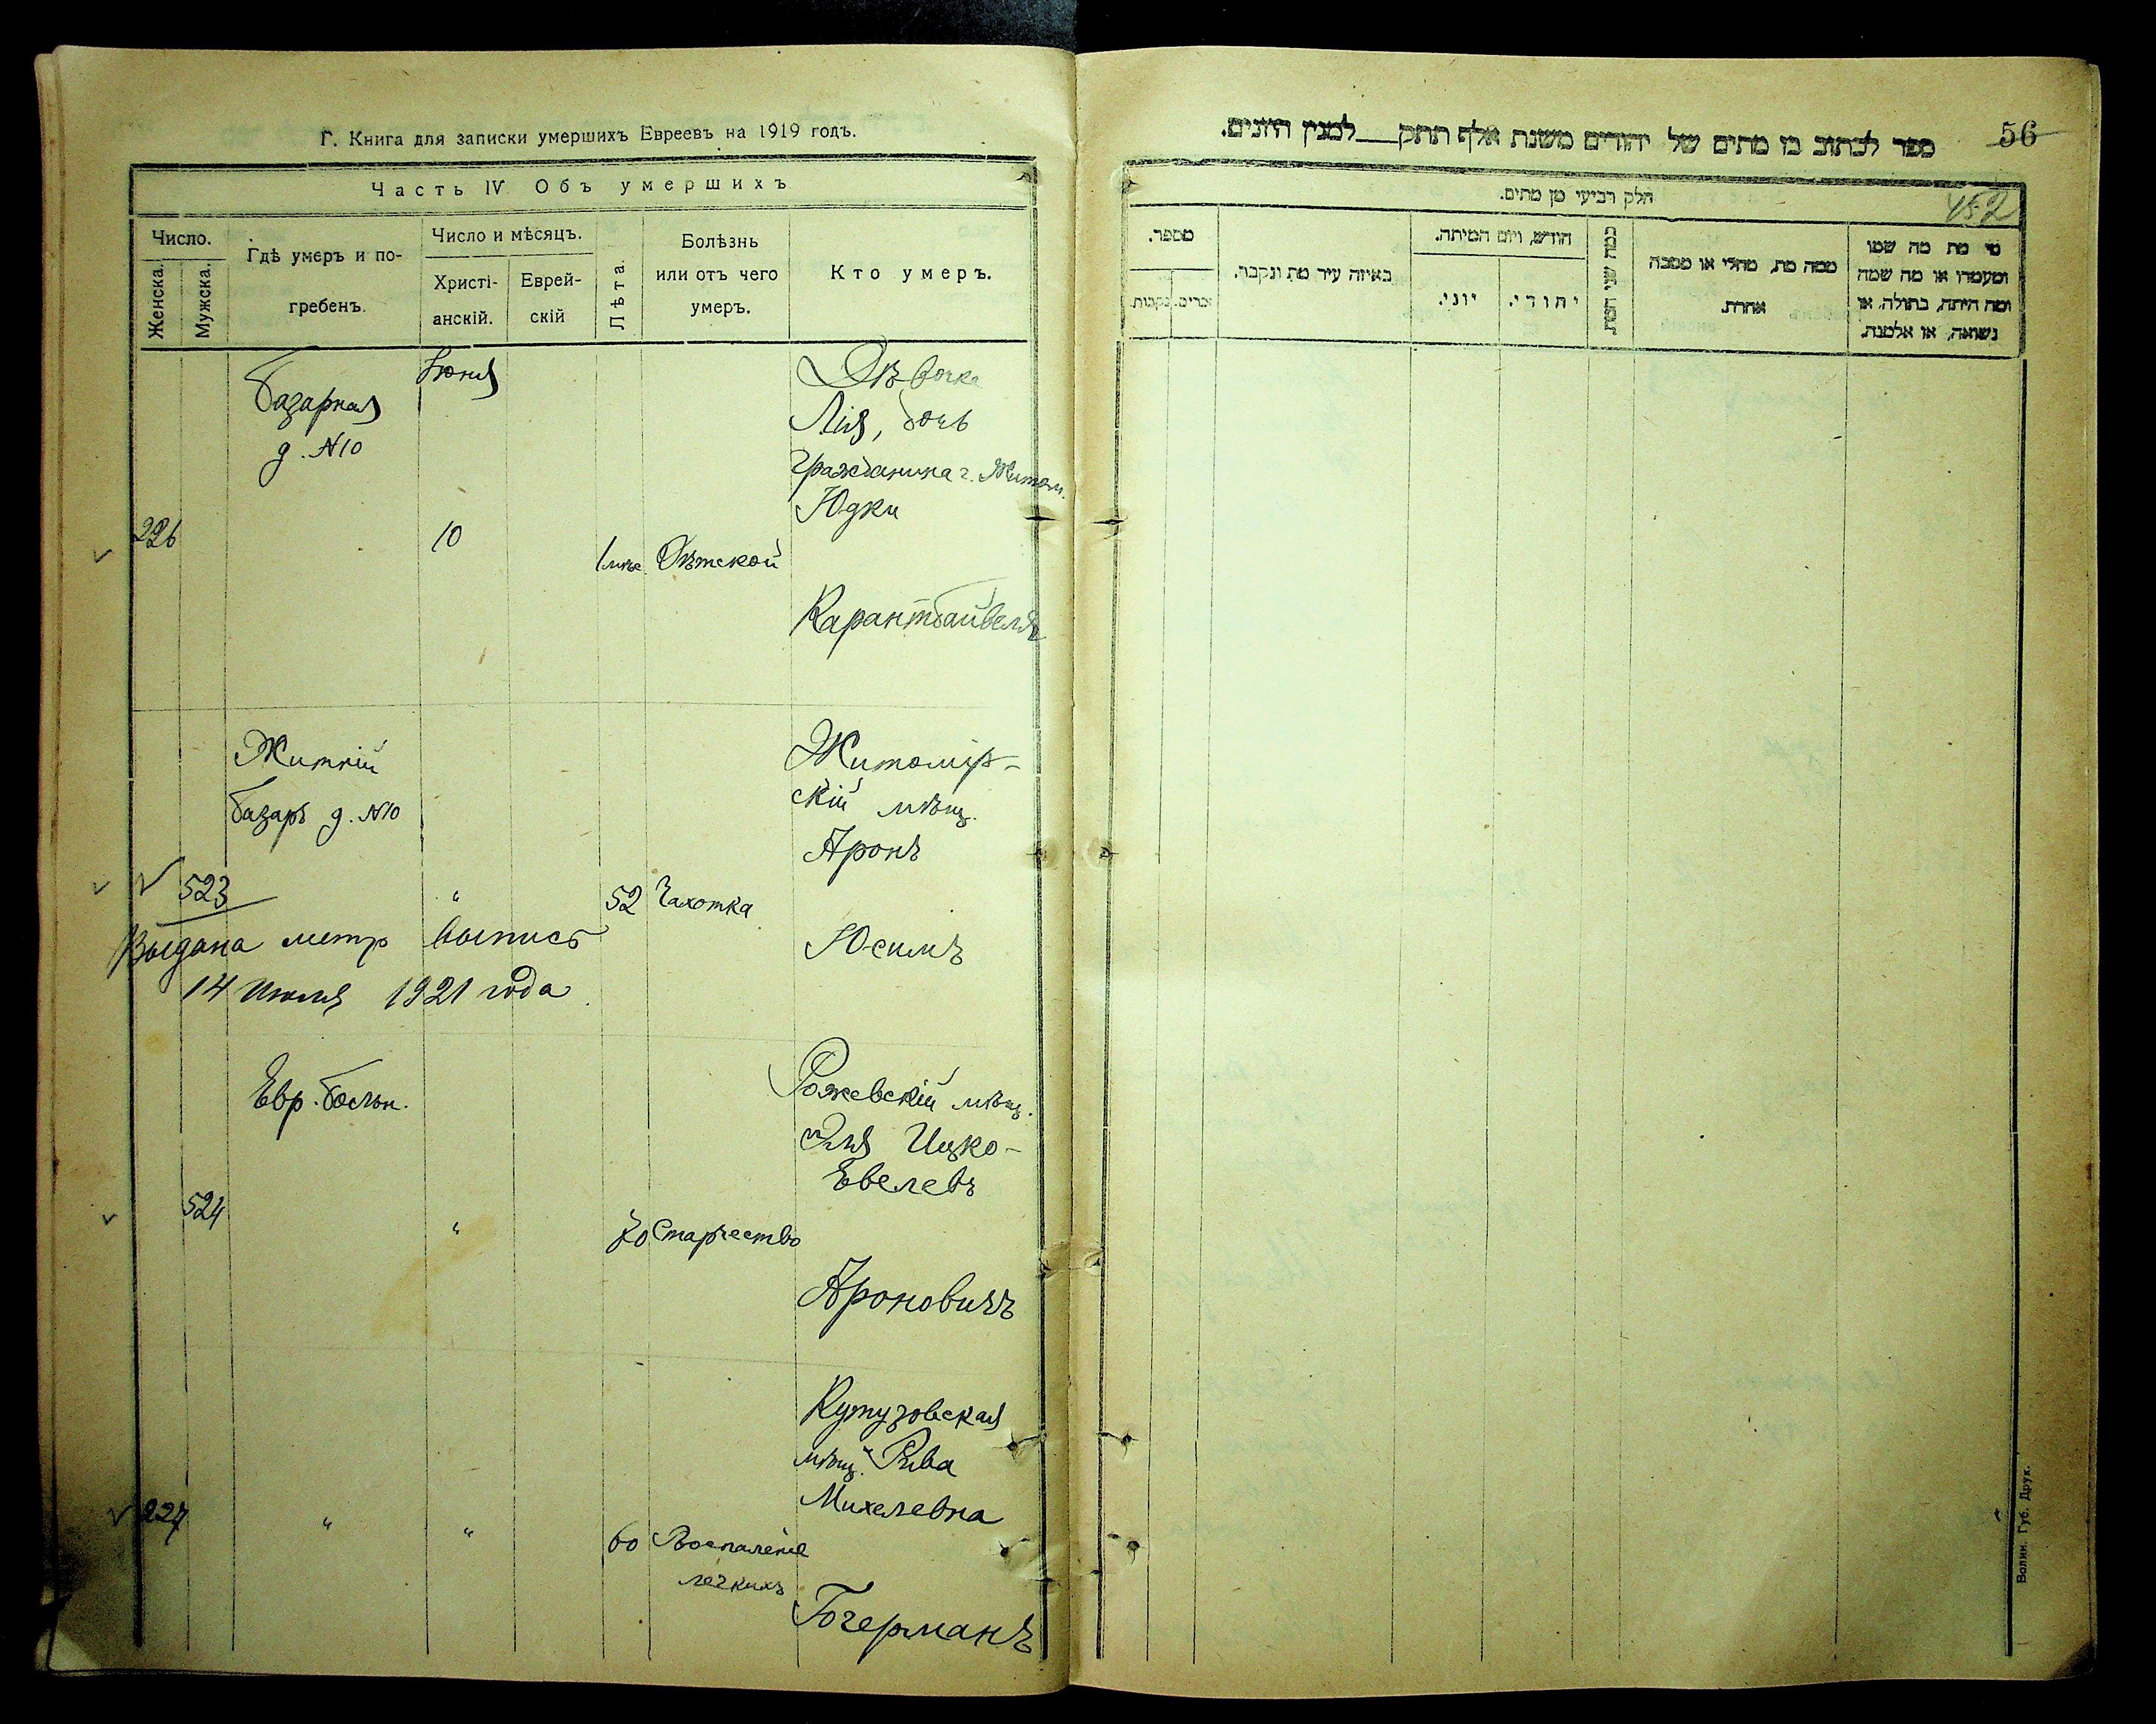 Г. Книга для записки умершихъ Евреевъ на 1919 годъ.
Часть IV Объ умершихъ
Число.
Женска.
Мужска.
Гдѣ умеръ и по-
гребенъ.
Число и мѣсяцъ.
Христі-
анскій.
Еврей-
скій
Лѣта.
Болѣзнь
или отъ чего
умеръ.
Кто умеръ.
Базарная
д. №10
Июня
Дѣвочка
Лія, дочь
гражданина г. Житом.
Юдки
226
10
1 мѣс.
Дѣтской
Карантбайвель
Житній
базаръ д. №10
Житомір-
скій мѣщ.
Аронъ
523
"
52
Чахотка
Юсимъ
Выдана метр выпись
14 Июля 1921 года
Евр. больн.
Рожевскій мѣщ.
Эля Ицко-
Евелевъ
524
"
70
Старчество
Ароновичъ
Кутузовская
мѣщ. Рива
Михелевна
227
"
"
60
Воспаленіе
легкихъ
Гогерманъ
56
ספר לכתוב בו מתים של יהודים משנת אלף תתק__למנין היונים.
חלק רביעי מן מתים.
452
מספר.
זכרים.
נקבות.
באיזה עיר מת ונקבר.
חודש, ויום המיתה.
יוני.
יהודי.
כמה שני המת.
ממה מת, מחלי או מסבה
אחרת.
מי מת מה שמו
ומעמדו או מה שמה
ומה היתה, בתולה, או
נשואה, או אלמנה.
Волин. Губ. Друк.